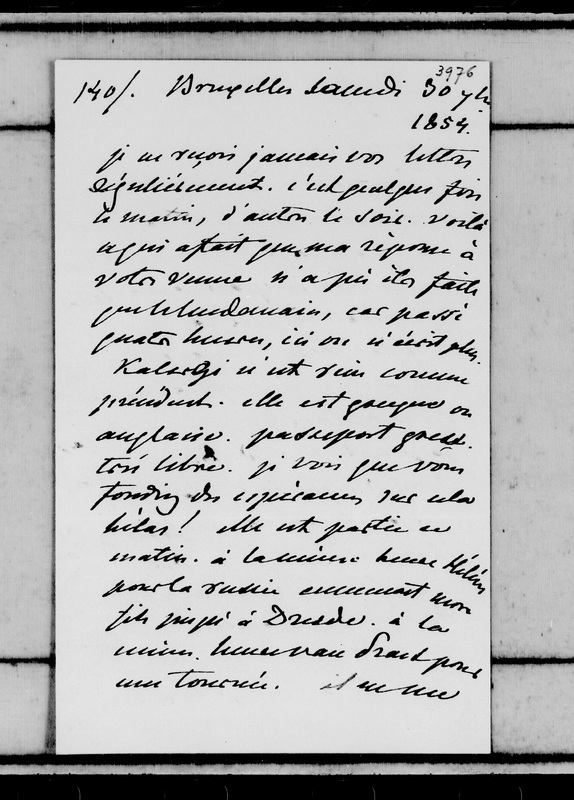 3976
140/. Bruxelles samedi 30 7bre
1854.
je ne reçois jamais vos lettres
régulièrement. c'est quelques fois
le matin, d'autres le soir. voilà
ce qui a fait que ma réponse à
votre venue n'a pu être faite
que le lendemain, car passé
quatre heures, ici on n'écrit plus.
Kalergi n'est rien comme
précédent. elle est grecque ou
anglaise. passeport grec.
très libre. je vois que vous
fondiez des espérances sur cela
hélas! elle est partie ce
matin. à la même heure Hélène
pour la russie emmenant mon
fils jusqu'à Dresde. à la
même heure van Praet pour
une tournée. il ne me